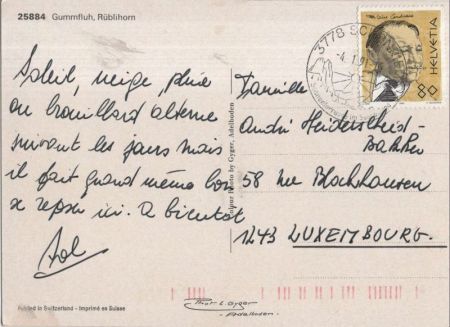 25884 Gummfluh, Rüblihorn
Soleil, neige, pluie
ou brouillard alterne
suivant les jours mais
il fait quand même bon
se reposer ici. A bientôt
Colour Photo by Gyger, Adelboden
Printed in Switzerland - Imprimé en Suisse
3778 SC
-4.1.91
HELVETIA
80
Famille
André Heiderscheid-
58 rue Blochausen
1243 LUXEMBOURG.
Phot. E. Gyger
Adelboden